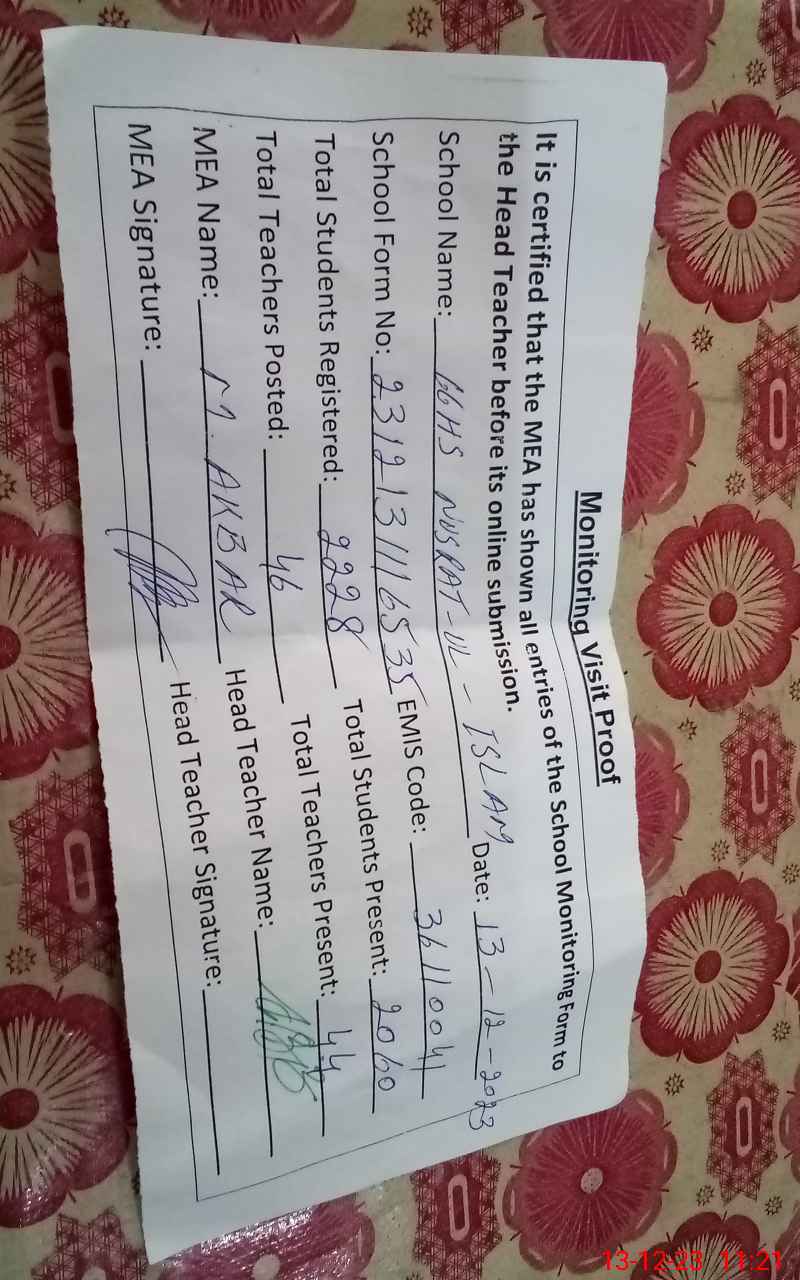 Monitoring Visit Proof
It is certified that the MEA has shown all entries of the School Monitoring Form to
the Head Teacher before its online submission.
School Name: NUSRAT-UL-ISLAM Date: 13-12-2023
School Form No: 2312131116535 EMIS Code: 36110041
Total Students Registered: 2228 Total Students Present: 2060
Total Teachers Posted: 46 Total Teachers Present: 44
MEA Name: M. AKBAR Head Teacher Name:
MEA Signature: Head Teacher Signature:
13-12-23 11:21